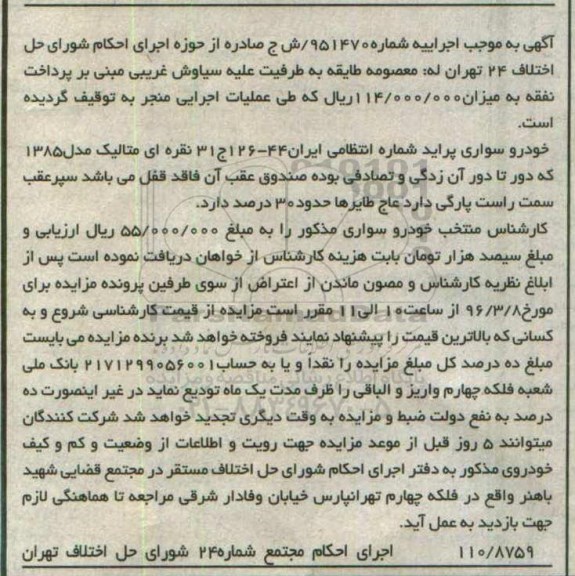 آگهی به موجب اجراییه شماره ۹۵۱۴۷۰/ش ج صادره از حوزه اجرای احکام شورای حل
اختلاف ۲۴ تهران له: معصومه طایقه به طرفیت علیه سیاوش غریبی مبنی بر پرداخت
نفقه به میزان ۱۱۴/۰۰۰/۰۰۰ریال که طی عملیات اجرایی منجر به توقیف گردیده
است.
خودرو سواری پراید شماره انتظامی ایران۴۴-۱۲۶ج۳۱ نقره ای متالیک مدل۱۳۸۵
که دور تا دور آن زدگی و تصادفی بوده صندوق عقب آن فاقد قفل می باشد سپرعقب
سمت راست پارگی دارد عاج طایرها حدود۳۰ درصد دارد.
کارشناس منتخب خودرو سواری مذکور را به مبلغ ۵۵/۰۰۰/۰۰۰ ریال ارزیابی و
مبلغ سیصد هزار تومان بابت هزینه کارشناس از خواهان دریافت نموده است پس از
ابلاغ نظریه کارشناس و مصون ماندن از اعتراض از سوی طرفین پرونده مزایده برای
مورخ۹۶/۳/۸ از ساعت۱۰ الی۱۱ مقرر است مزایده از قیمت کارشناسی شروع و به
کسانی که بالاترین قیمت را پیشنهاد نمایند فروخته خواهد شد برنده مزایده می بایست
مبلغ ده درصد کل مبلغ مزایده را نقدا و یا به حساب۲۱۷۱۲۹۹۰۵۶۰۰۱ بانک ملی
شعبه فلکه چهارم واریز و الباقی را ظرف مدت یک ماه تودیع نماید در غیر اینصورت ده
درصد به نفع دولت ضبط و مزایده به وقت دیگری تجدید خواهد شد شرکت کنندگان
میتوانند ۵ روز قبل از موعد مزایده جهت رویت و اطلاعات از وضعیت و کم و کیف
خودروی مذکور به دفتر اجرای احکام شورای حل اختلاف مستقر در مجتمع قضایی شهید
باهنر واقع در فلکه چهارم تهرانپارس خیابان وفادار شرقی مراجعه تا هماهنگی لازم
جهت بازدید به عمل آید.
۱۱۰/۸۷۵۹ اجرای احکام مجتمع شماره۲۴ شورای حل اختلاف تهران